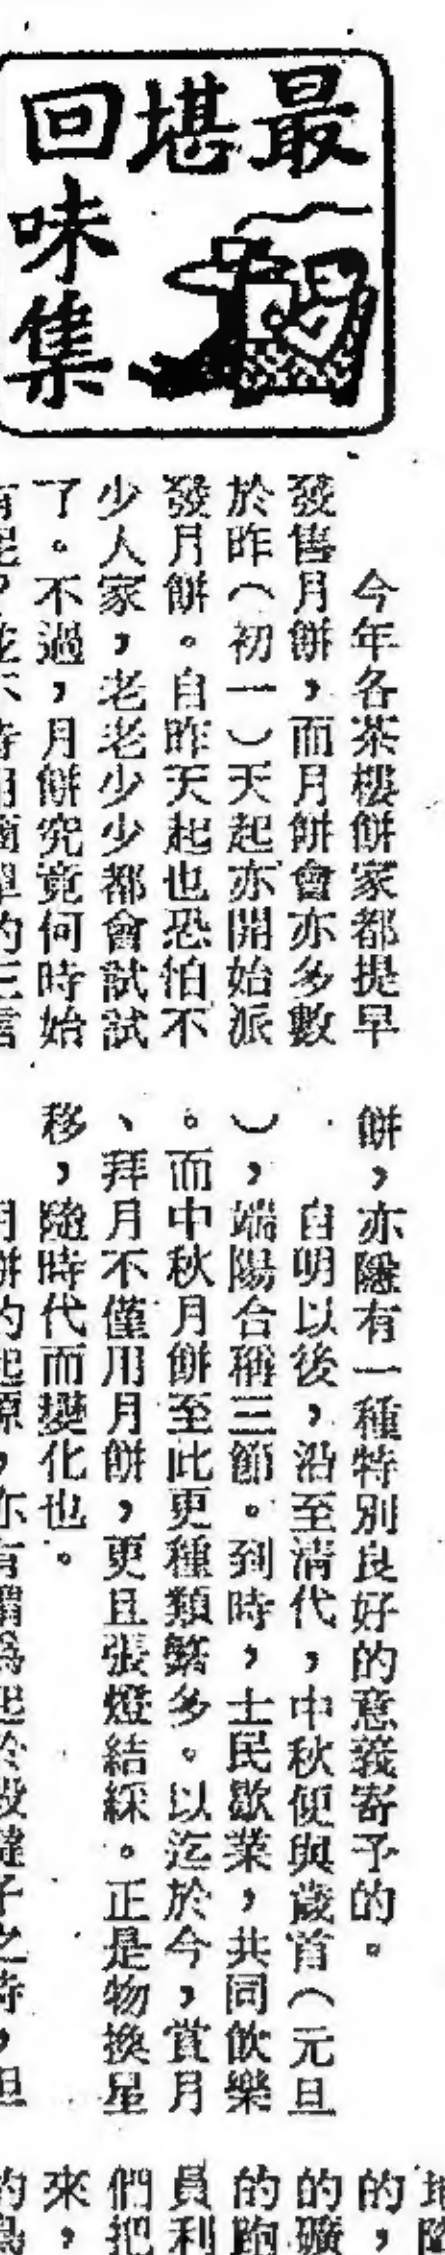 最堪
回味集
今年各茶樓餅家都提早
發售月餅，而月餅會亦多數
於昨（初一）天起亦開始派
發月餅。自昨天起也恐怕不
少人家，老老少少都會試試
了。不過，月餅究竟何時始
餅，亦隱有一種特別良好的意義寄予的。
自明以後，沿至清代，中秋便與歲首（元旦
），端陽合稱三節。到時，士民歇業，共同飲樂
。而中秋月餅至此更種類繁多。以迄於今，賞月
、拜月不僅用月餅，更且張燈結綵。正是物換星
移，隨時代而變化也。
的，
的礦
的跑
員利
們把
來，